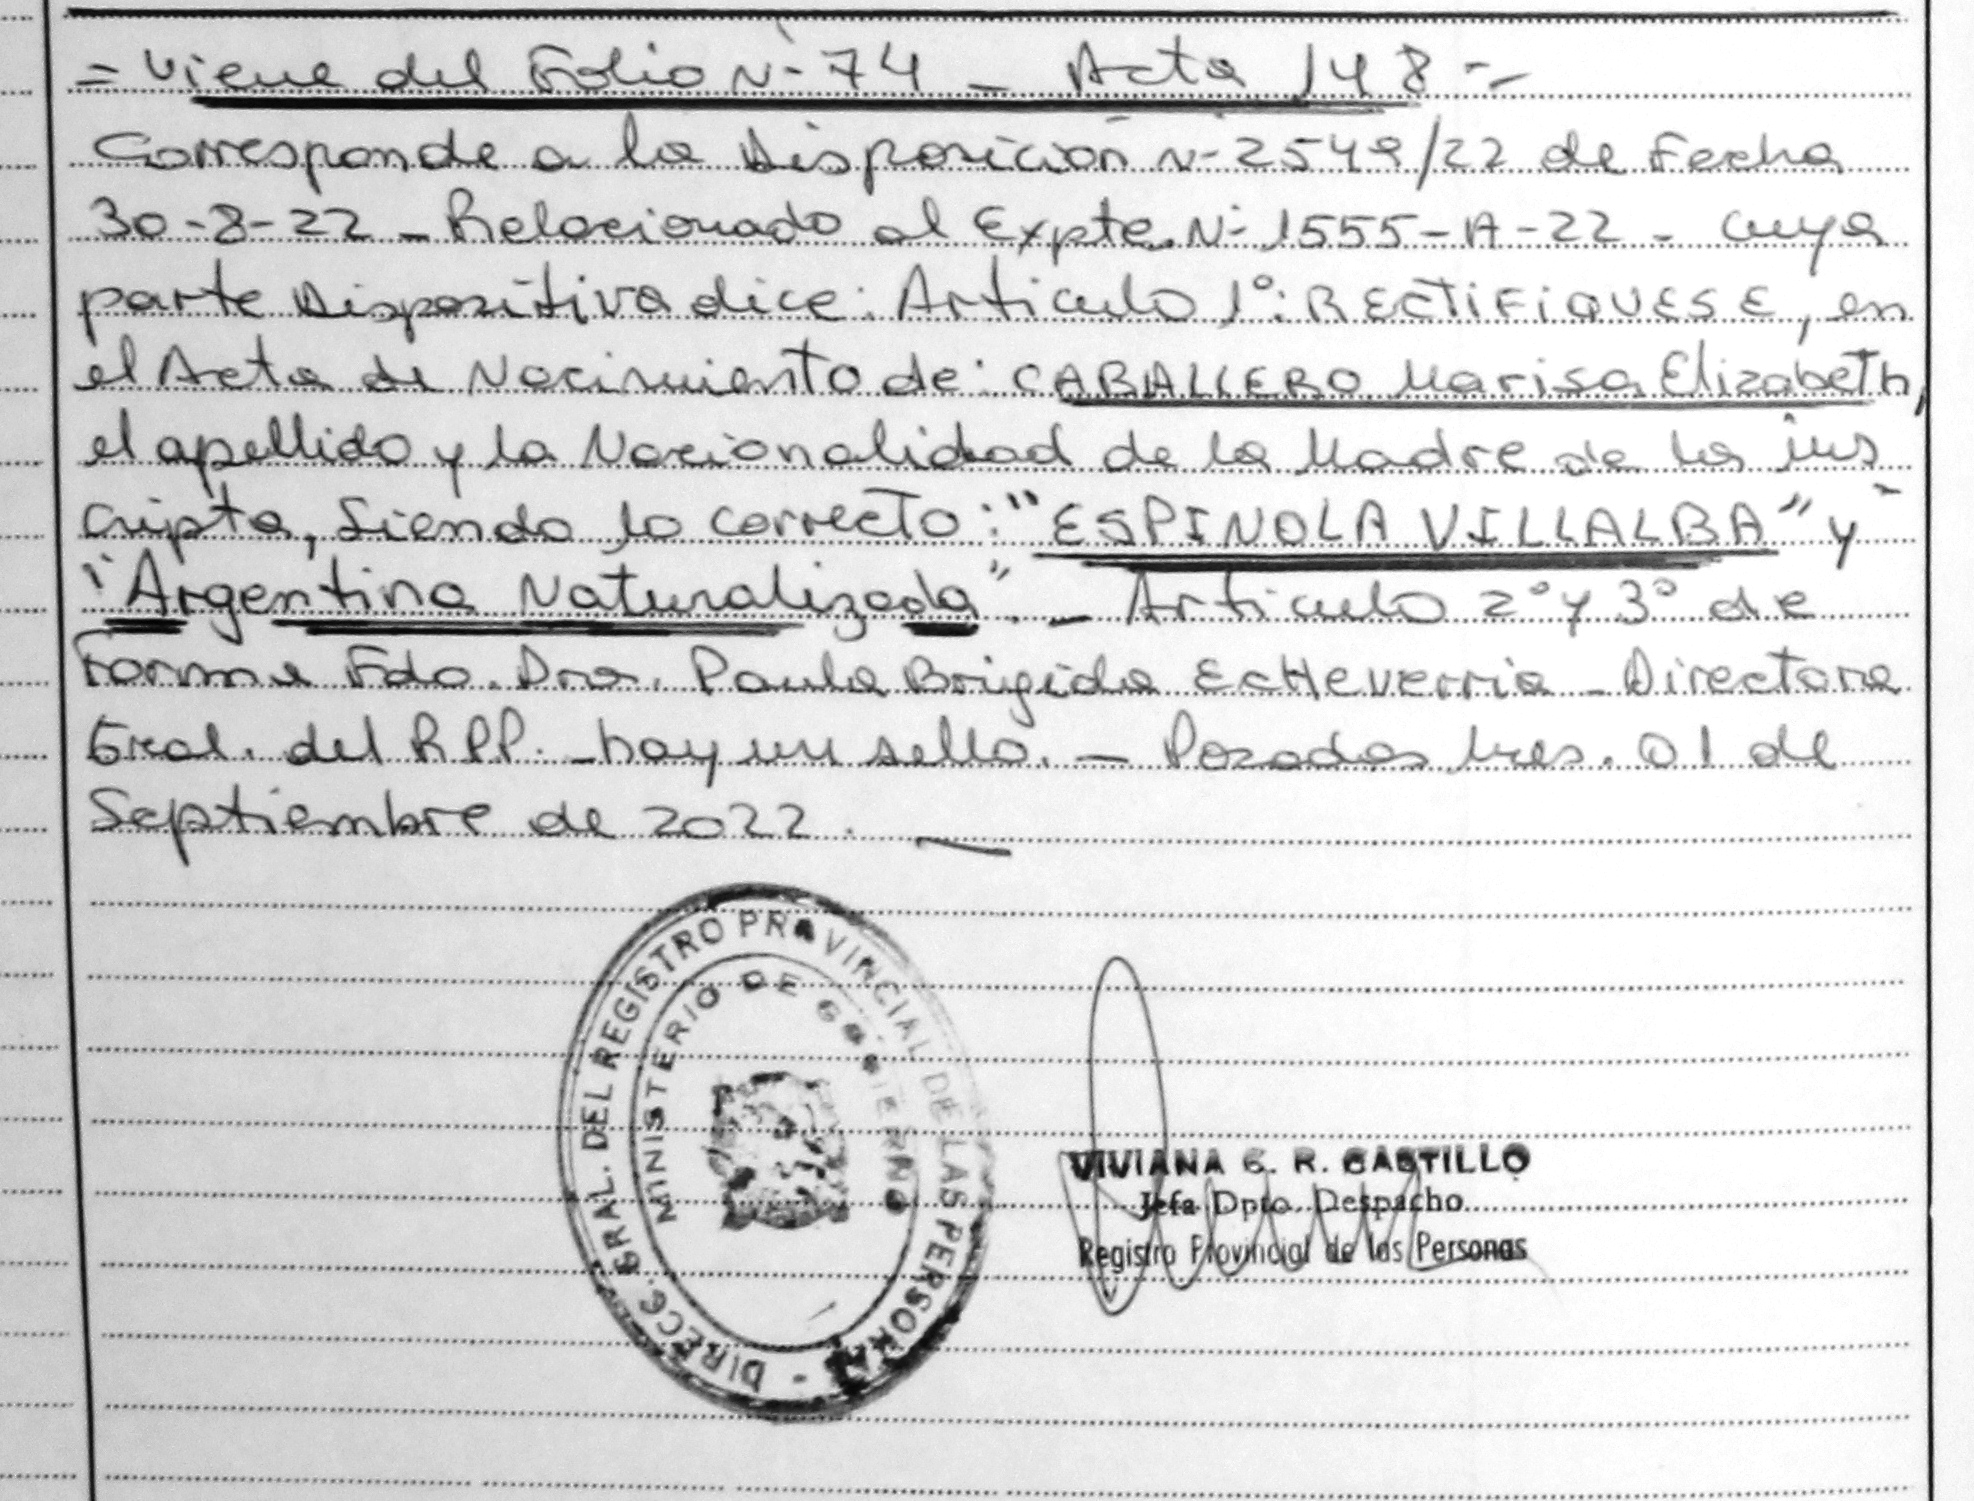 = Viene del Folio N- 74 - Acta 148 -
Corresponde a la Disposición N- 2549/22 de Fecha
30-8-22 - Relacionado al Expte. N- 1555-A-22 - cuya
parte Dispositiva dice: Articulo 1º: RECTIFIQUESE, en
el Acta de Nacimiento de: CABALLERO Marisa Elizabeth,
el apellido y la Nacionalidad de la Madre de la ins
cripta, siendo lo correcto: "ESPINOLA VILLALBA" y
"Argentina Naturalizada". - Articulo 2º y 3º de
Forma Fdo. Dra. Paula Brigida Echeverria - Directora
Gral. del R.P.P. - hay un sello. - Posadas Mnes. 01 de
Septiembre de 2022.
DIRECC. GRAL. DEL REGISTRO PROVINCIAL DE LAS PERSONAS -
MINISTERIO DE GOBIERNO
VIVIANA G. R. CASTILLO
Jefa Dpto. Despacho
Registro Provincial de las Personas